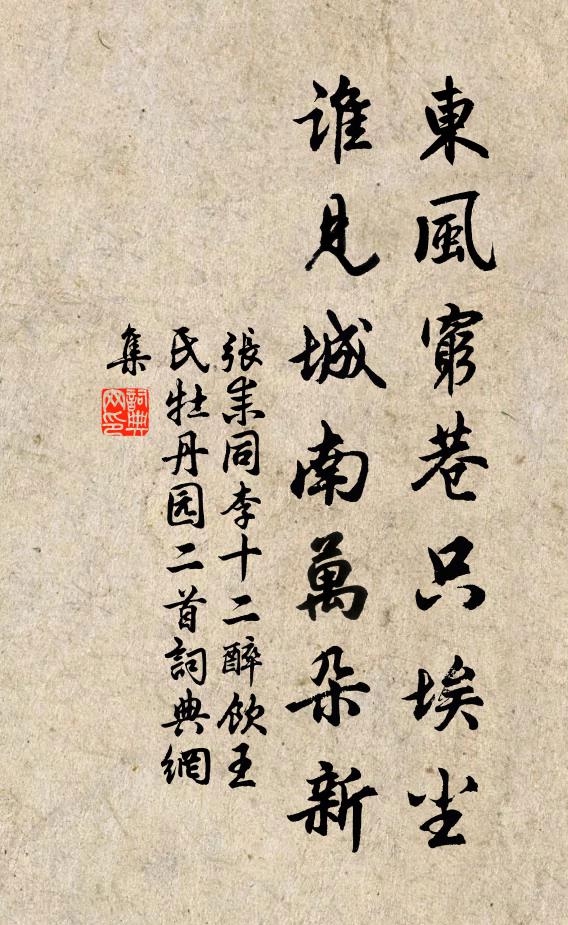 東風窮巷只埃尘
誰見城南萬朵新
張耒同李十二醉飲王
氏牡丹园二首詞典網
集
詞典网印